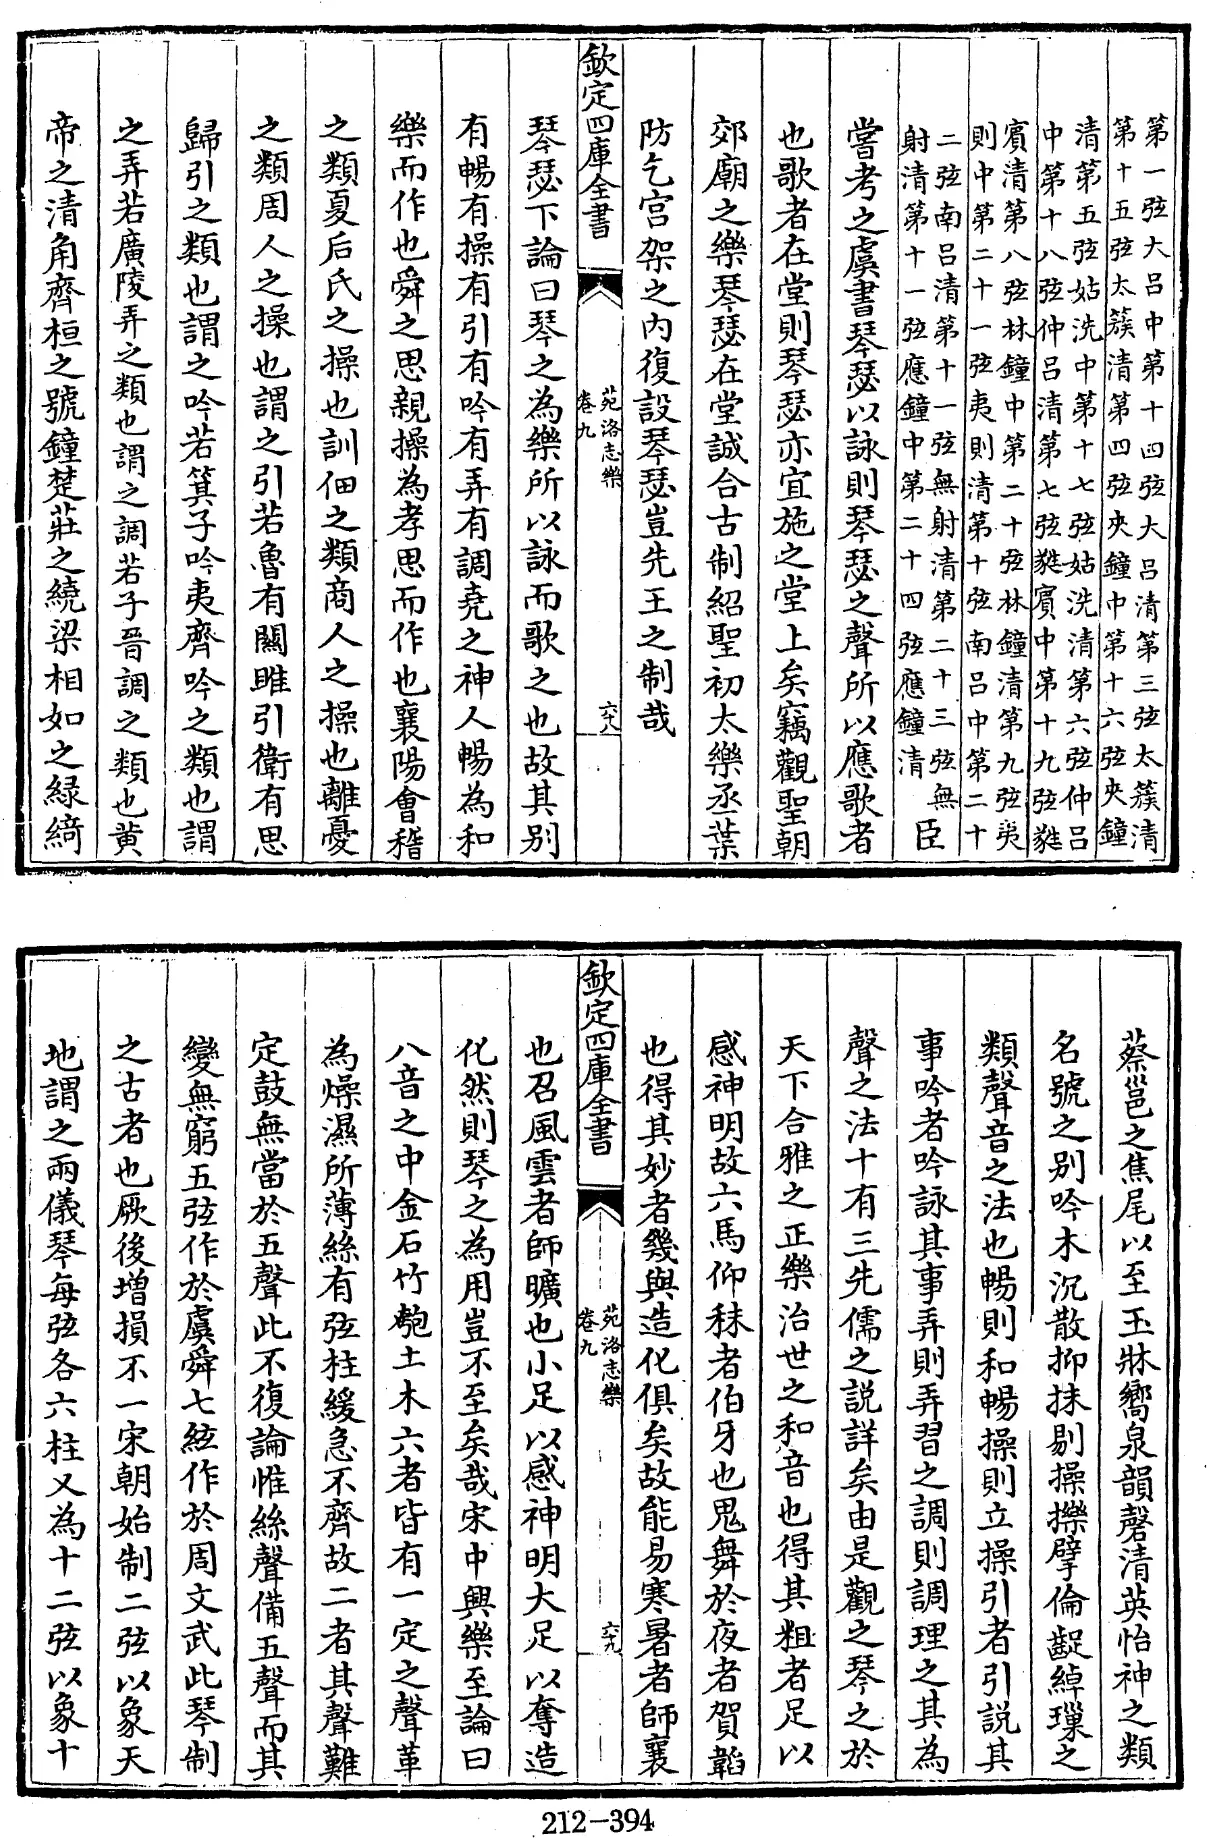 第一弦大吕中第十四弦大吕清第三弦太簇清
第十五弦太簇清第四弦夾鐘中第十六弦夾鐘
清第五弦姑洗中第十七弦姑洗清第六弦仲吕
中第十八弦仲吕清第七弦蕤賓中第十九弦蕤
賓清第八弦林鐘中第二十弦林鐘清第九弦夷
則中第二十一弦夷則清第十弦南吕中第二十
二弦南吕清第十一弦無射清第二十三弦無
射清第十一弦應鐘中第二十四弦應鐘清
臣
嘗考之虞書琴瑟以詠則琴瑟之聲所以應歌者
也歌者在堂則琴瑟亦宜施之堂上矣竊觀聖朝
郊廟之樂琴瑟在堂誠合古制紹聖初太樂丞葉
防乞宫架之内復設琴瑟豈先王之制哉
欽定四庫全書
苑洛志樂
卷九
六十八
琴瑟下論曰琴之為樂所以詠而歌之也故其别
有暢有操有引有吟有弄有調堯之神人暢為和
樂而作也舜之思親操為孝思而作也襄陽會稽
之類夏后氏之操也訓佃之類商人之操也離憂
之類周人之操也謂之引若魯有關雎引衛有思
歸引之類也謂之吟若箕子吟夷齊吟之類也謂
之弄若廣陵弄之類也謂之調若子晉調之類也黄
帝之清角齊桓之號鐘楚莊之繞梁相如之緑綺
蔡邕之焦尾以至玉牀嚮泉韻磬清英怡神之類
名號之别吟木沉散抑抹剔操擽擘倫齪綽璅之
類聲音之法也暢則和暢操則立操引者引説其
事吟者吟詠其事弄則弄習之調則調理之其為
聲之法十有三先儒之説詳矣由是觀之琴之於
天下合雅之正樂治世之和音也得其粗者足以
感神明故六馬仰秣者伯牙也鬼舞於夜者賀韜
也得其妙者幾與造化俱矣故能易寒暑者師襄
欽定四庫全書
苑洛志樂
卷九
六十九
也召風雲者師曠也小足以感神明大足以奪造
化然則琴之為用豈不至矣哉宋中興樂至論曰
八音之中金石竹匏土木六者皆有一定之聲革
為燥濕所薄絲有弦柱緩急不齊故二者其聲難
定鼓無當於五聲此不復論惟絲聲備五聲而其
變無窮五弦作於虞舜七絃作於周文武此琴制
之古者也厥後增損不一宋朝始制二弦以象天
地謂之兩儀琴每弦各六柱又為十二弦以象十
212-394